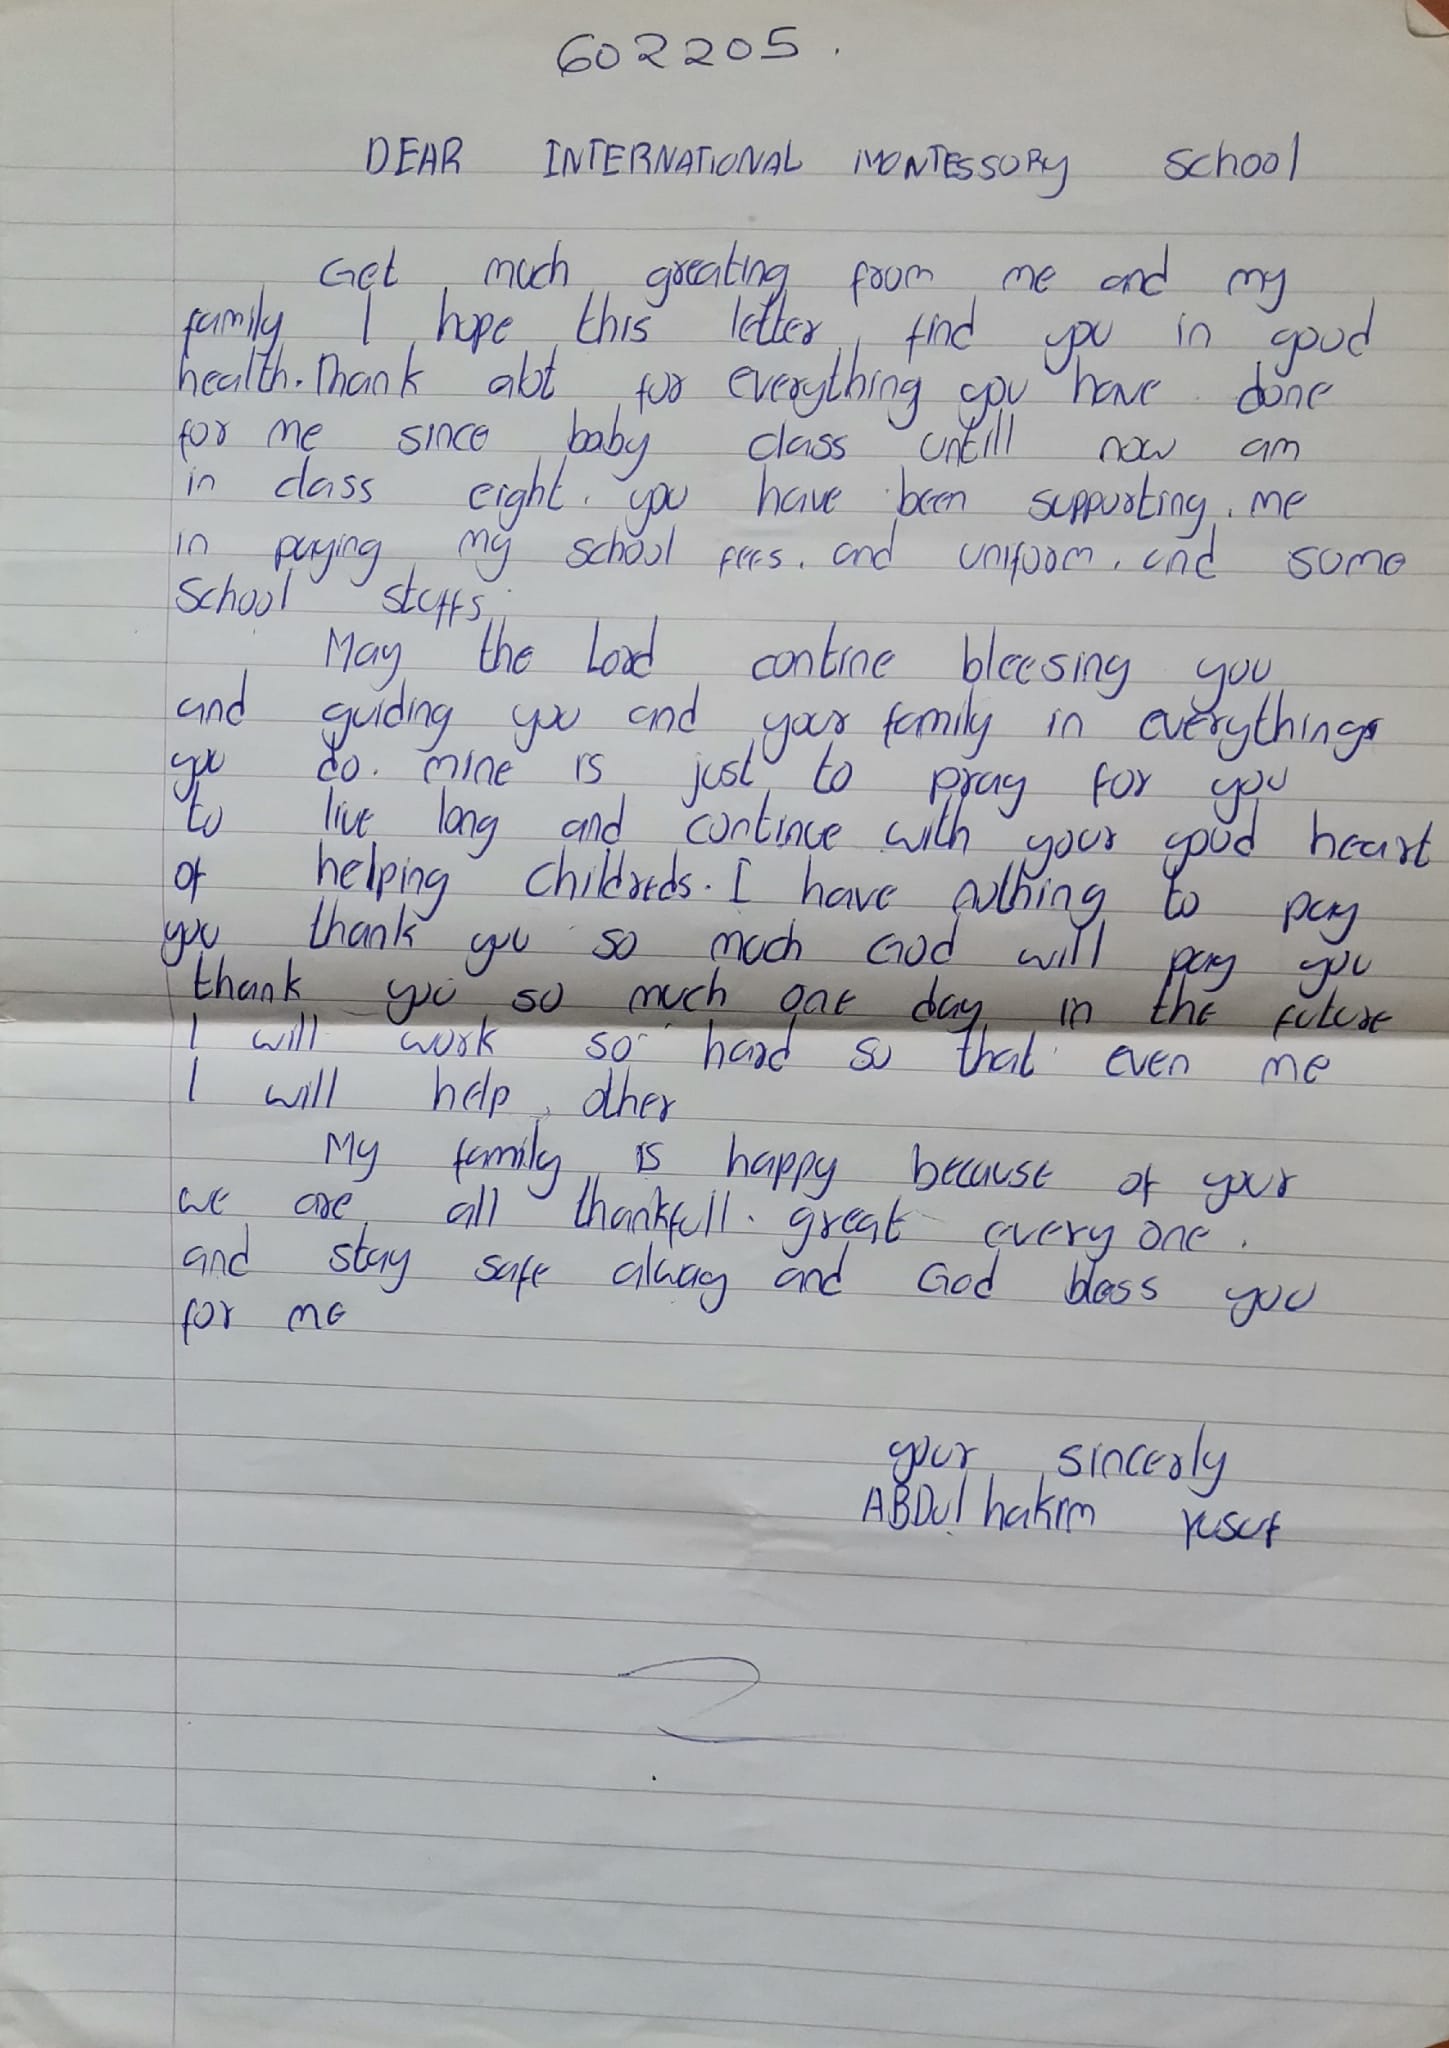 602205.
DEAR INTERNATIONAL MONTESSORY School
Get much greating from me and my
family I hope this letter find you in good
health. Thank abt for everything you have done
for me since baby class untill now am
in class eight. you have been supporting me
in paying my school fees. and uniform. and some
School stuffs.
May the Lord contine bleesing you
and guiding you and your family in everythings
you do. mine is just to pray for you
to live long and continue with your good heart
of helping childreds. I have nothing to pay
you thank you so much God will pay you
thank you so much one day in the future
I will work so hard so that even me
I will help other
My family is happy because of your
we are all thankfull. great every one.
and stay safe alway and God bless you
for me
your sincerly
ABDul hakim Yusuf
2